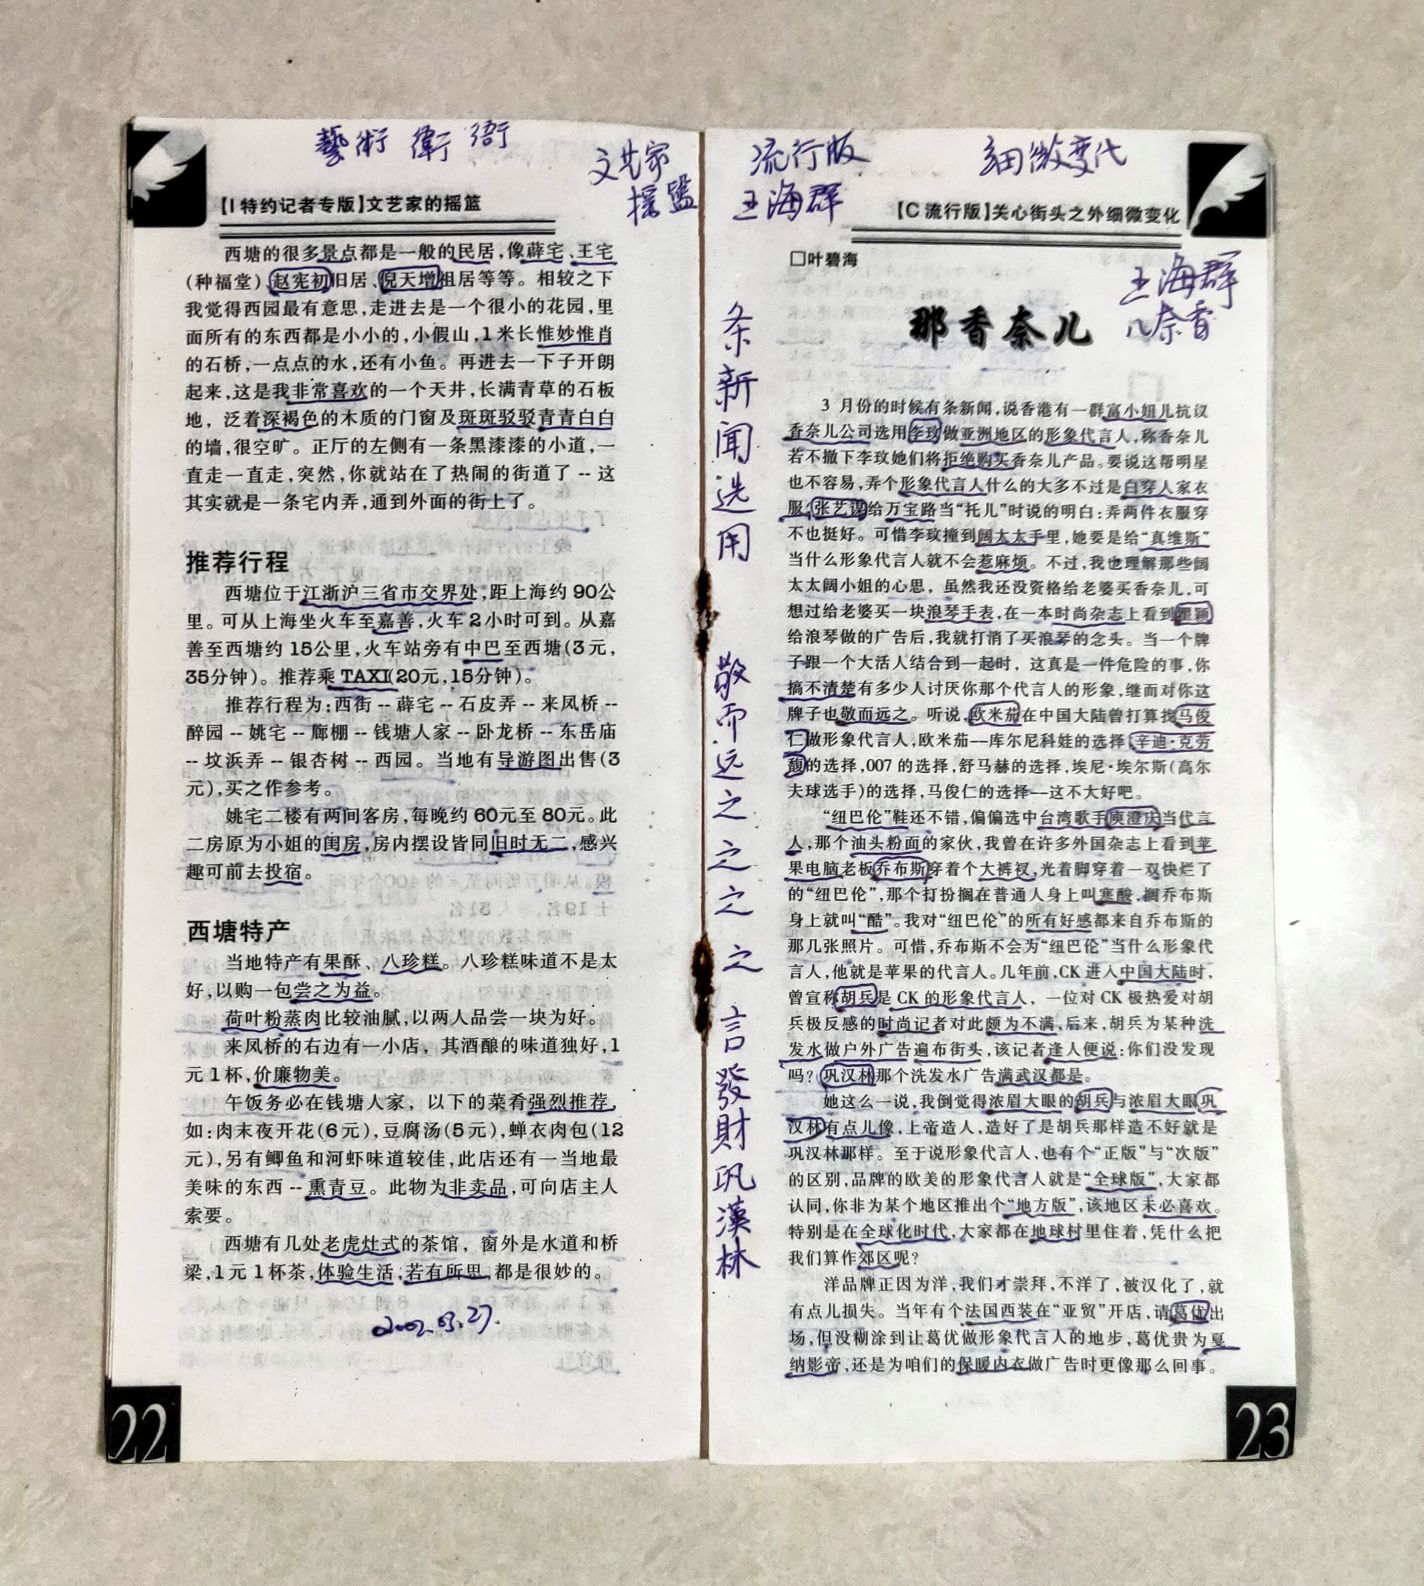 藝術 衛
文艺家
摇篮
【I 特约记者专版】文艺家的摇篮
西塘的很多景点都是一般的民居,像薜宅、王宅
(种福堂)、赵宪初旧居、倪天增祖居等等。相较之下
我觉得西园最有意思,走进去是一个很小的花园,里
面所有的东西都是小小的,小假山,1米长惟妙惟肖
的石桥,一点点的水,还有小鱼。再进去一下子开朗
起来,这是我非常喜欢的一个天井,长满青草的石板
地，泛着深褐色的木质的门窗及斑斑驳驳青青白白
的墙,很空旷。正厅的左侧有一条黑漆漆的小道,一
直走一直走,突然,你就站在了热闹的街道了 -- 这
其实就是一条宅内弄,通到外面的街上了。
推荐行程
西塘位于江浙沪三省市交界处,距上海约90公
里。可从上海坐火车至嘉善,火车2小时可到。从嘉
善至西塘约15公里,火车站旁有中巴至西塘(3元,
35分钟)。推荐乘TAXI(20元,15分钟)。
推荐行程为:西街 -- 薜宅 -- 石皮弄 -- 来凤桥 --
醉园 -- 姚宅 -- 廊棚 -- 钱塘人家 -- 卧龙桥 -- 东岳庙
-- 坟浜弄 -- 银杏树 -- 西园。当地有导游图出售(3
元),买之作参考。
姚宅二楼有两间客房,每晚约60元至80元。此
二房原为小姐的闺房,房内摆设皆同旧时无二,感兴
趣可前去投宿。
西塘特产
当地特产有果酥、八珍糕。八珍糕味道不是太
好,以购一包尝之为益。
荷叶粉蒸肉比较油腻,以两人品尝一块为好。
来凤桥的右边有一小店，其酒酿的味道独好,1
元1杯,价廉物美。
午饭务必在钱塘人家，以下的菜肴强烈推荐,
如:肉末夜开花(6元),豆腐汤(5元),蝉衣肉包(12
元),另有鲫鱼和河虾味道较佳,此店还有一当地最
美味的东西 -- 熏青豆。此物为非卖品,可向店主人
索要。
西塘有几处老虎灶式的茶馆，窗外是水道和桥
梁,1元1杯茶,体验生活,若有所思,都是很妙的。
2002.03.27.
22
流行版
王海群
细微变化
【C 流行版】关心街头之外细微变化
□叶碧海
王海群
儿奈香
那香奈儿
条新闻选用
敬而远之之之之言發財巩漢林
3 月份的时候有条新闻,说香港有一群富小姐儿抗议
香奈儿公司选用李玟做亚洲地区的形象代言人,称香奈儿
若不撤下李玟她们将拒绝购买香奈儿产品。要说这帮明星
也不容易,弄个形象代言人什么的大多不过是白穿人家衣
服,张艺谋给万宝路当“托儿”时说的明白:弄两件衣服穿
不也挺好。可惜李玟撞到阔太太手里,她要是给“真维斯”
当什么形象代言人就不会惹麻烦。不过,我也理解那些阔
太太阔小姐的心思，虽然我还没资格给老婆买香奈儿,可
想过给老婆买一块浪琴手表,在一本时尚杂志上看到瞿颖
给浪琴做的广告后,我就打消了买浪琴的念头。当一个牌
子跟一个大活人结合到一起时，这真是一件危险的事,你
搞不清楚有多少人讨厌你那个代言人的形象,继而对你这
牌子也敬而远之。听说,欧米茄在中国大陆曾打算找马俊
仁做形象代言人,欧米茄--库尔尼科娃的选择,辛迪·克劳
馥的选择,007的选择,舒马赫的选择,埃尼·埃尔斯(高尔
夫球选手)的选择,马俊仁的选择--这不大好吧。
“纽巴伦”鞋还不错,偏偏选中台湾歌手庾澄庆当代言
人,那个油头粉面的家伙,我曾在许多外国杂志上看到苹
果电脑老板乔布斯穿着个大裤衩,光着脚穿着一双快烂了
的“纽巴伦”,那个打扮搁在普通人身上叫寒酸,搁乔布斯
身上就叫“酷”。我对“纽巴伦”的所有好感都来自乔布斯的
那几张照片。可惜,乔布斯不会为“纽巴伦”当什么形象代
言人,他就是苹果的代言人。几年前,CK进入中国大陆时,
曾宣称胡兵是CK的形象代言人，一位对CK极热爱对胡
兵极反感的时尚记者对此颇为不满,后来,胡兵为某种洗
发水做户外广告遍布街头,该记者逢人便说:你们没发现
吗?巩汉林那个洗发水广告满武汉都是。
她这么一说,我倒觉得浓眉大眼的胡兵与浓眉大眼巩
汉林有点儿像,上帝造人,造好了是胡兵那样造不好就是
巩汉林那样。至于说形象代言人,也有个“正版”与“次版”
的区别,品牌的欧美的形象代言人就是“全球版”,大家都
认同,你非为某个地区推出个“地方版”,该地区未必喜欢。
特别是在全球化时代,大家都在地球村里住着,凭什么把
我们算作郊区呢?
洋品牌正因为洋,我们才崇拜,不洋了,被汉化了,就
有点儿损失。当年有个法国西装在“亚贸”开店,请葛优出
场,但没糊涂到让葛优做形象代言人的地步,葛优贵为戛
纳影帝,还是为咱们的保暖内衣做广告时更像那么回事。
23